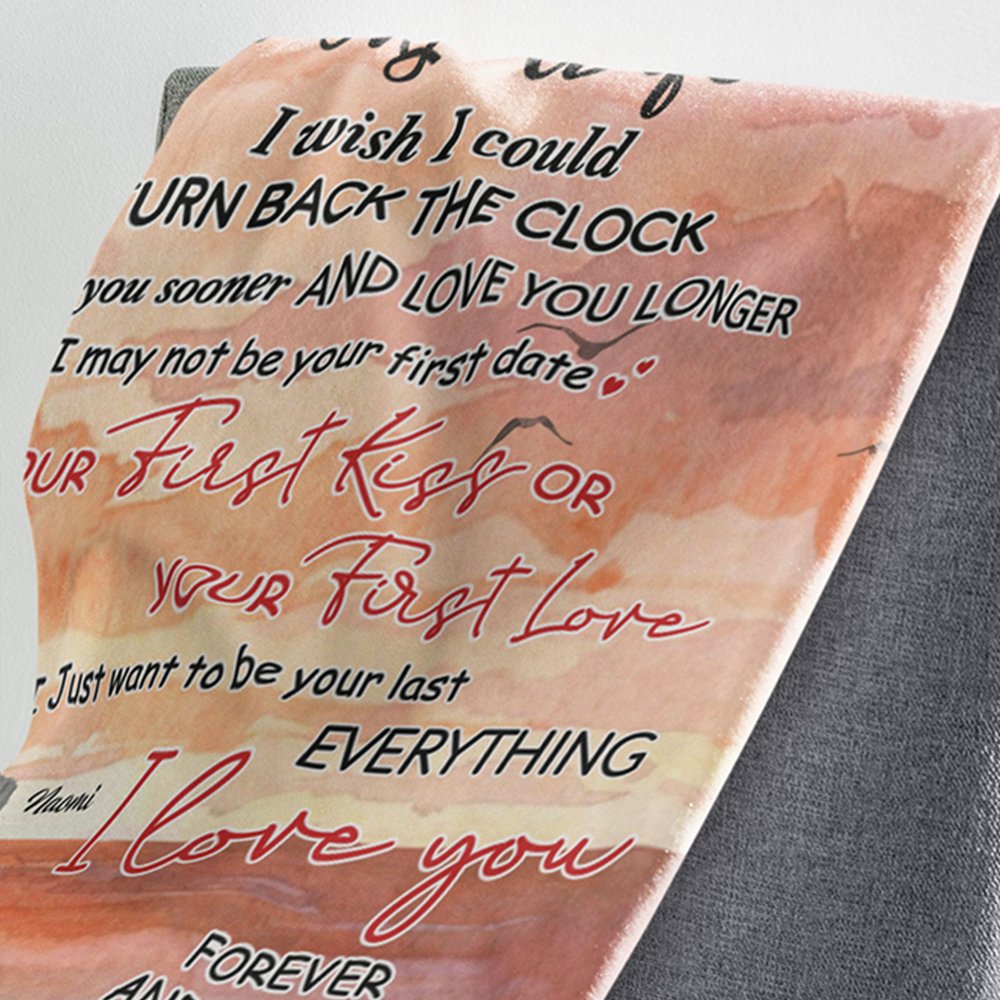 I wish I could
URN BACK THE CLOCK
you sooner AND LOVE YOU LONGER
I may not be your first date
OUR First Kiss OR
YOUR First Love
I Just want to be your last
EVERYTHING
Naomi
I love you
FOREVER
AND